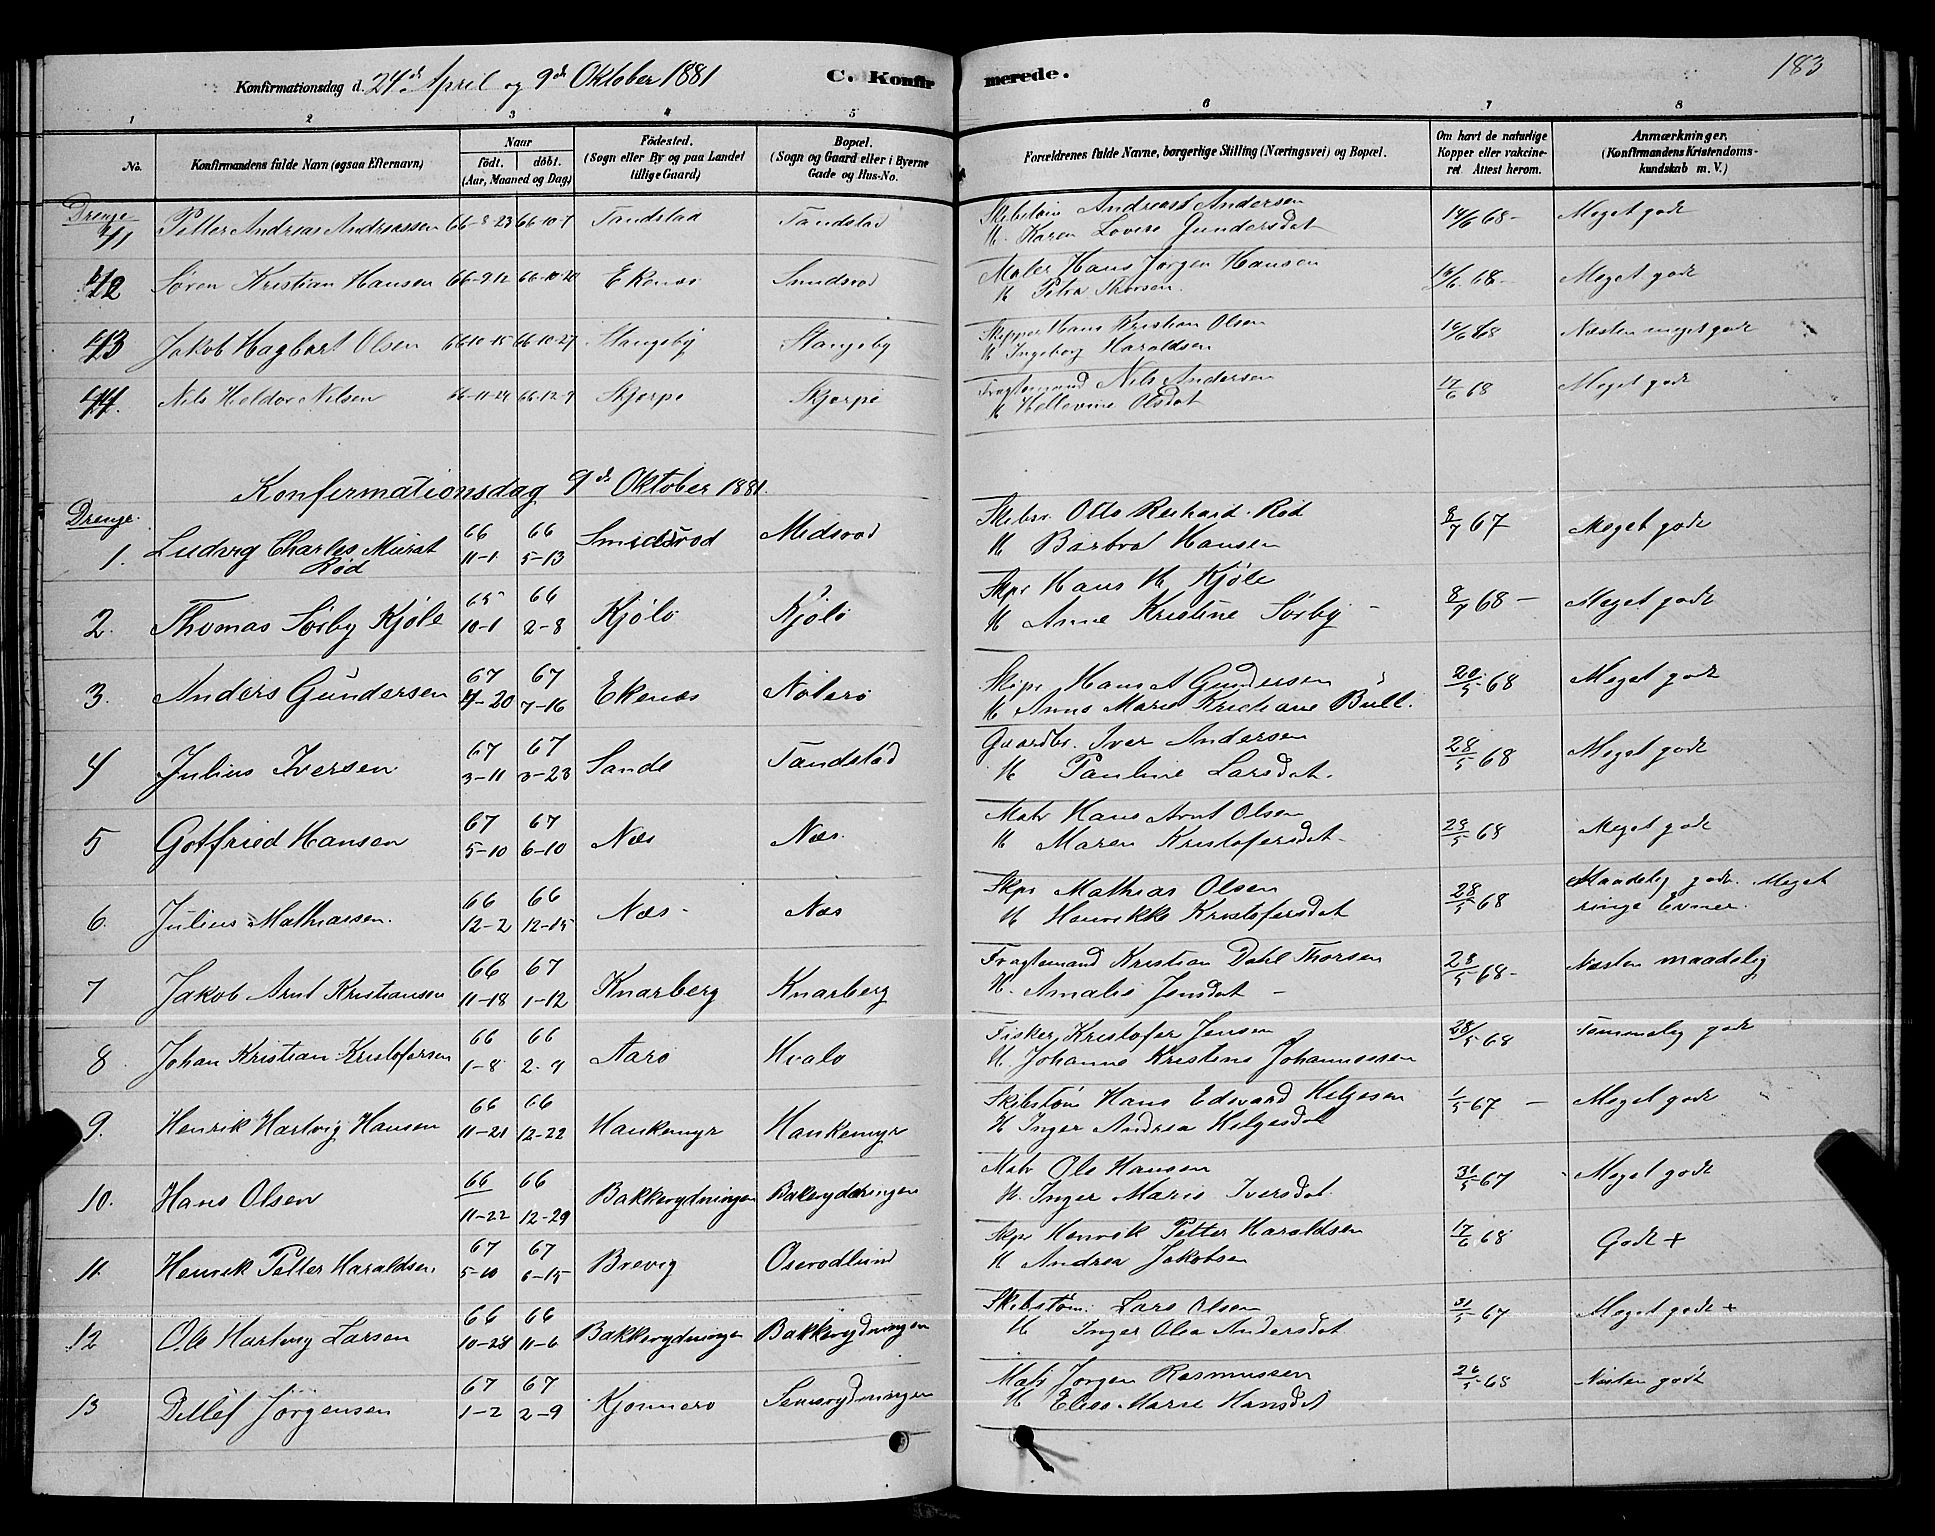 Konfirmationsdag d. 24de April og 9de Oktober 1881
C. Konfirmerede.
183
1 2 3 4 5 6 7 8
No.
Konfirmandens fulde Navn (ogsaa Efternavn)
Naar
födt. döbt.
(Aar, Maaned og Dag)
Födested.
(Sogn eller By og paa Landet
tillige Gaard)
Bopæl.
(Sogn og Gaard eller i Byerne
Gade og Hus-No.
Forældrenes fulde Navne, borgerlige Stilling (Næringsvei) og Bopæl.
Om havt de naturlige
Kopper eller vakcine-
ret Attest herom.
Anmærkninger,
(Konfirmandens Kristendoms-
kundskab m. V.)
Drenge
41 Petter Andreas Andreassen 66-8-23 66-10-7 Tandstad Tandstad Skibstøm Andreas Andersen 14/6 68- Meget godt
H. Karen Lovise Gundersdat
42 Søren Kristian Hansen 66-9-12 66-10-20 Ekenæs Smidsrød Maler Hans Jørgen Hansen 16/6 68- Meget godt
H Petra Thorsen.
43 Jakob Hagbart Olsen 66-10-15 66-10-27 Stangeby Stangeby Skipper Hans Kristian Olsen 16/6 68 Næsten meget godt
H Ingeborg Haraldsen
44. Nils Heldor Nilsen 66-11-24 66-12-9 Skjerpe Skjerpe Fragtemand Nils Andersen 17/6 68 Meget godt
H Hellevine Olsdat
Konfirmationsdag 9de Oktober 1881.
Drenge.
1. Ludvig Charles Murat 66 66 Smidsrød Midsrød Skibsr. Otto Reichard Rød 8/7 67 Meget godt
Rød 11-1 5-13 H Barbra Hansen
2. Thomas Sørby Kjøle 65 66 Kjøle Kjøle Skpr Hans H Kjøle 8/7 68 - Meget godt
10-1 2-8 H Anne Kristine Sørby -
3. Anders Gundersen 67 67 Ekenæs Nøterø Skipr Hans A Gundersen 20/5 68 Meget godt
4-20 7-16 H Anne Marie Kristiane Bull.
4 Julius Iversen 67 67 Sande Tandstad Gaardbr. Iver Andersen 28/5 68 Meget godt
3-11 3-23 H Pauline Larsdat.
5 Gotfried Hansen 67 67 Næs Næs. Matr Hans Arnt Olsen 28/5 68 Meget godt
5-10 6-10 H Maren Kristofersdat
6. Julius Mathiassen. 66 66 Næs - Næs Skpr Mathias Olsen 28/5 68 Maadelig godt. Meget
12-2 12-15 H Henrikke Kristofersdat ringe Evner.
7 Jakob Arnt Kristiansen 66 67 Knarberg Knarberg Fragtemand Kristian Dahl Thorsen 28/5 68- Næsten maadelig
11-18 1-12 H. Amalie Jensdat -
8. Johan Kristian Kristofersen 66 66 Aarø Hvalø Fisker Kristofer Jensen 28/5 68 Temmelig godt
1-8 2-9 H. Johanne Kristine Johannessen
9. Henrik Hartvig Hansen 66 66 Hankemyr Hankemyr Skibstøm Hans Edvard Helgesen 1/5 67 - Meget godt
11-21 12-22 H Inger Andrea Helgesdat
10. Hans Olsen 66 66 Bakkerydningen Bakerydningen Matr Ole Hansen 31/5 67 Meget godt
11-22 12-29 H. Inger Marie Iversdat.
11. Henrik Petter Haraldsen. 67 67 Brevig Oserødlund Skpr Henrik Petter Haraldsen 17/6 68 Godt +
5-10 6-15 H Andrea Jakobsen
12 Ole Hartvig Larsen 66 66 Bakkerydningen Bakkerydningen Skibstøm. Lars Olsen 31/5 67 Meget godt +
10-28 11-6 H Inger Olea Andersdat
13 Detlef Jørgensen 67 67 Kjønnerø Semsrydningen Matr Jørgen Rasmussen 26/5 68 Næsten godt
1-2 2-9 H Elise Marie Hansdat